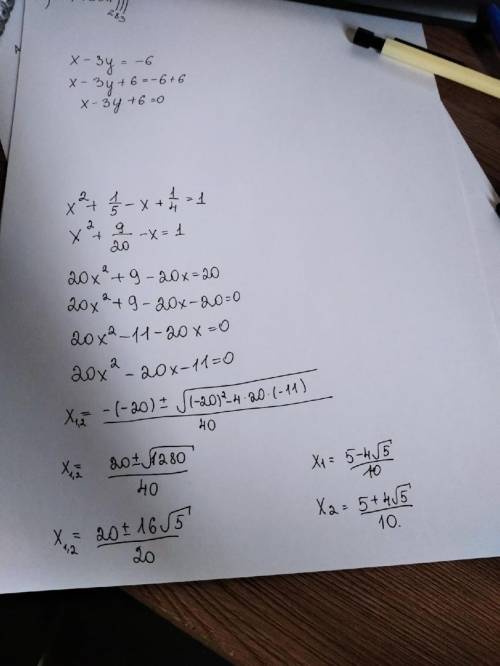 x - 3y = -6
x - 3y + 6 = -6 + 6
x - 3y + 6 = 0
x² + 1/5 - x + 1/4 = 1
x² + 9/20 - x = 1
20x² + 9 - 20x = 20
20x² + 9 - 20x - 20 = 0
20x² - 11 - 20x = 0
20x² - 20x - 11 = 0
x₁,₂ = (-(-20) ± √((-20)² - 4·20·(-11)))/40
x₁,₂ = (20 ± √1280)/40
x₁,₂ = (20 ± 16√5)/20
x₁ = (5 - 4√5)/10
x₂ = (5 + 4√5)/10.